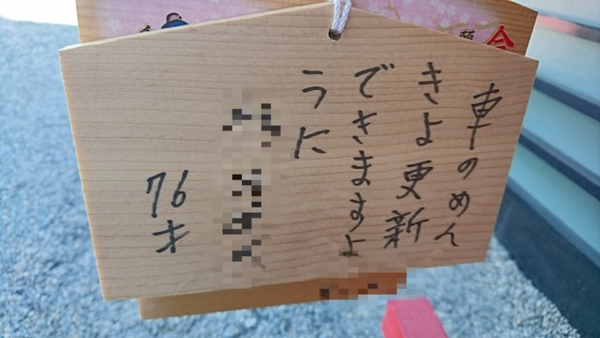 車のめん
きよ更新
できますよ
うに
76才